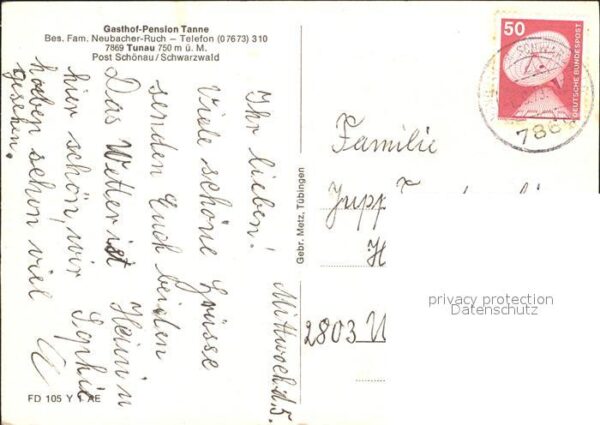 Gasthof-Pension Tanne
Bes. Fam. Neubacher-Ruch – Telefon (07673) 310
7869 Tunau 750 m ü. M.
Post Schönau/Schwarzwald
Mittwoch d. 5.
Ihr lieben!
Viele schöne Grüsse
senden Euch beiden
Das Wetter ist Heini n
hier schön, wir Sophie
haben schon viel
gesehen.
FD 105 Y 1 AE
Gebr. Metz, Tübingen
50
DEUTSCHE BUNDESPOST
786
Familie
Jupp
H
2803
privacy protection
Datenschutz